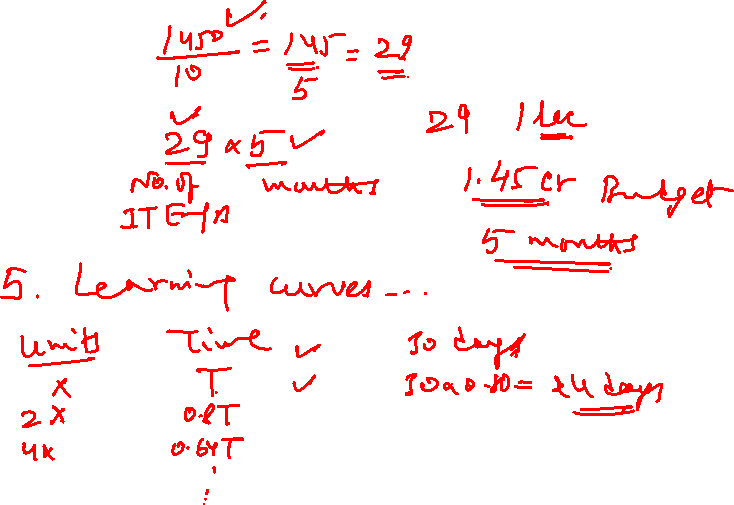 1450/10 = 145/5 = 29
29 × 5
No. of months
29 1
1.45 cr Budget
5 months
5. Learning curves ...
Units Time
x T
2x 0.8T
4x 0.64T
30 days
30 × 0.80 = 24 days